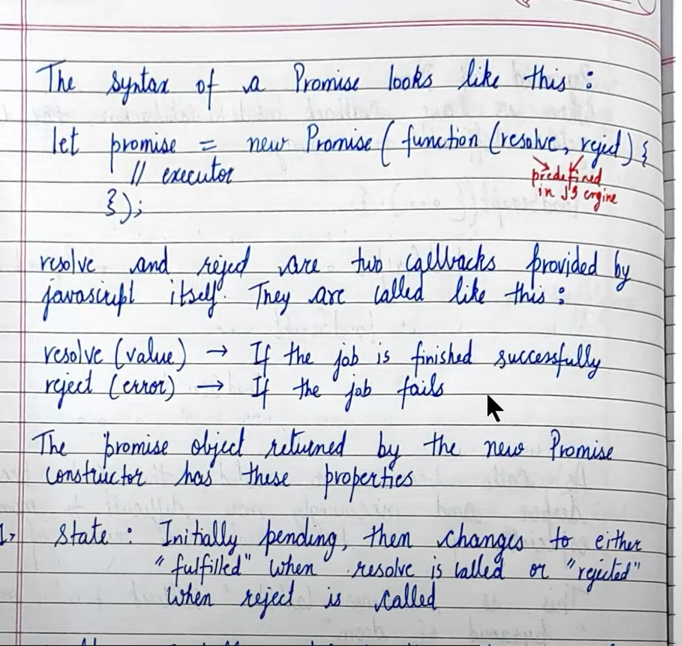 The syntax of a Promise looks like this :
let promise = new Promise ( function (resolve, reject) {
// executor
predefined
in JS engine
});
resolve and reject are two callbacks provided by
javascript itself. They are called like this :
resolve (value) → If the job is finished successfully
reject (error) → If the job fails
The promise object returned by the new Promise
constructor has these properties
1> State : Initially pending, then changes to either
"fulfilled" when resolve is called or "rejected"
when reject is called